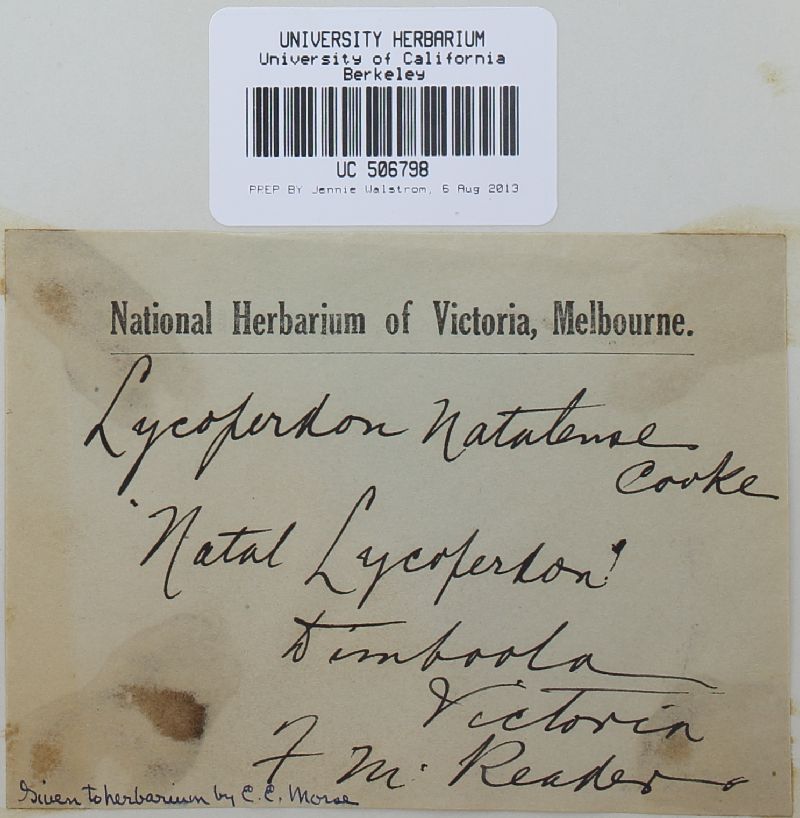 UNIVERSITY HERBARIUM
University of California
Berkeley
UC 506798
PREP BY Jennie Walstrom, 6 Aug 2013
National Herbarium of Victoria, Melbourne.
Lycoperdon Natalense
Cooke
'Natal Lycoperdon'
Dimboola
Victoria
F M. Reader.
Given to herbarium by E. E. Morse